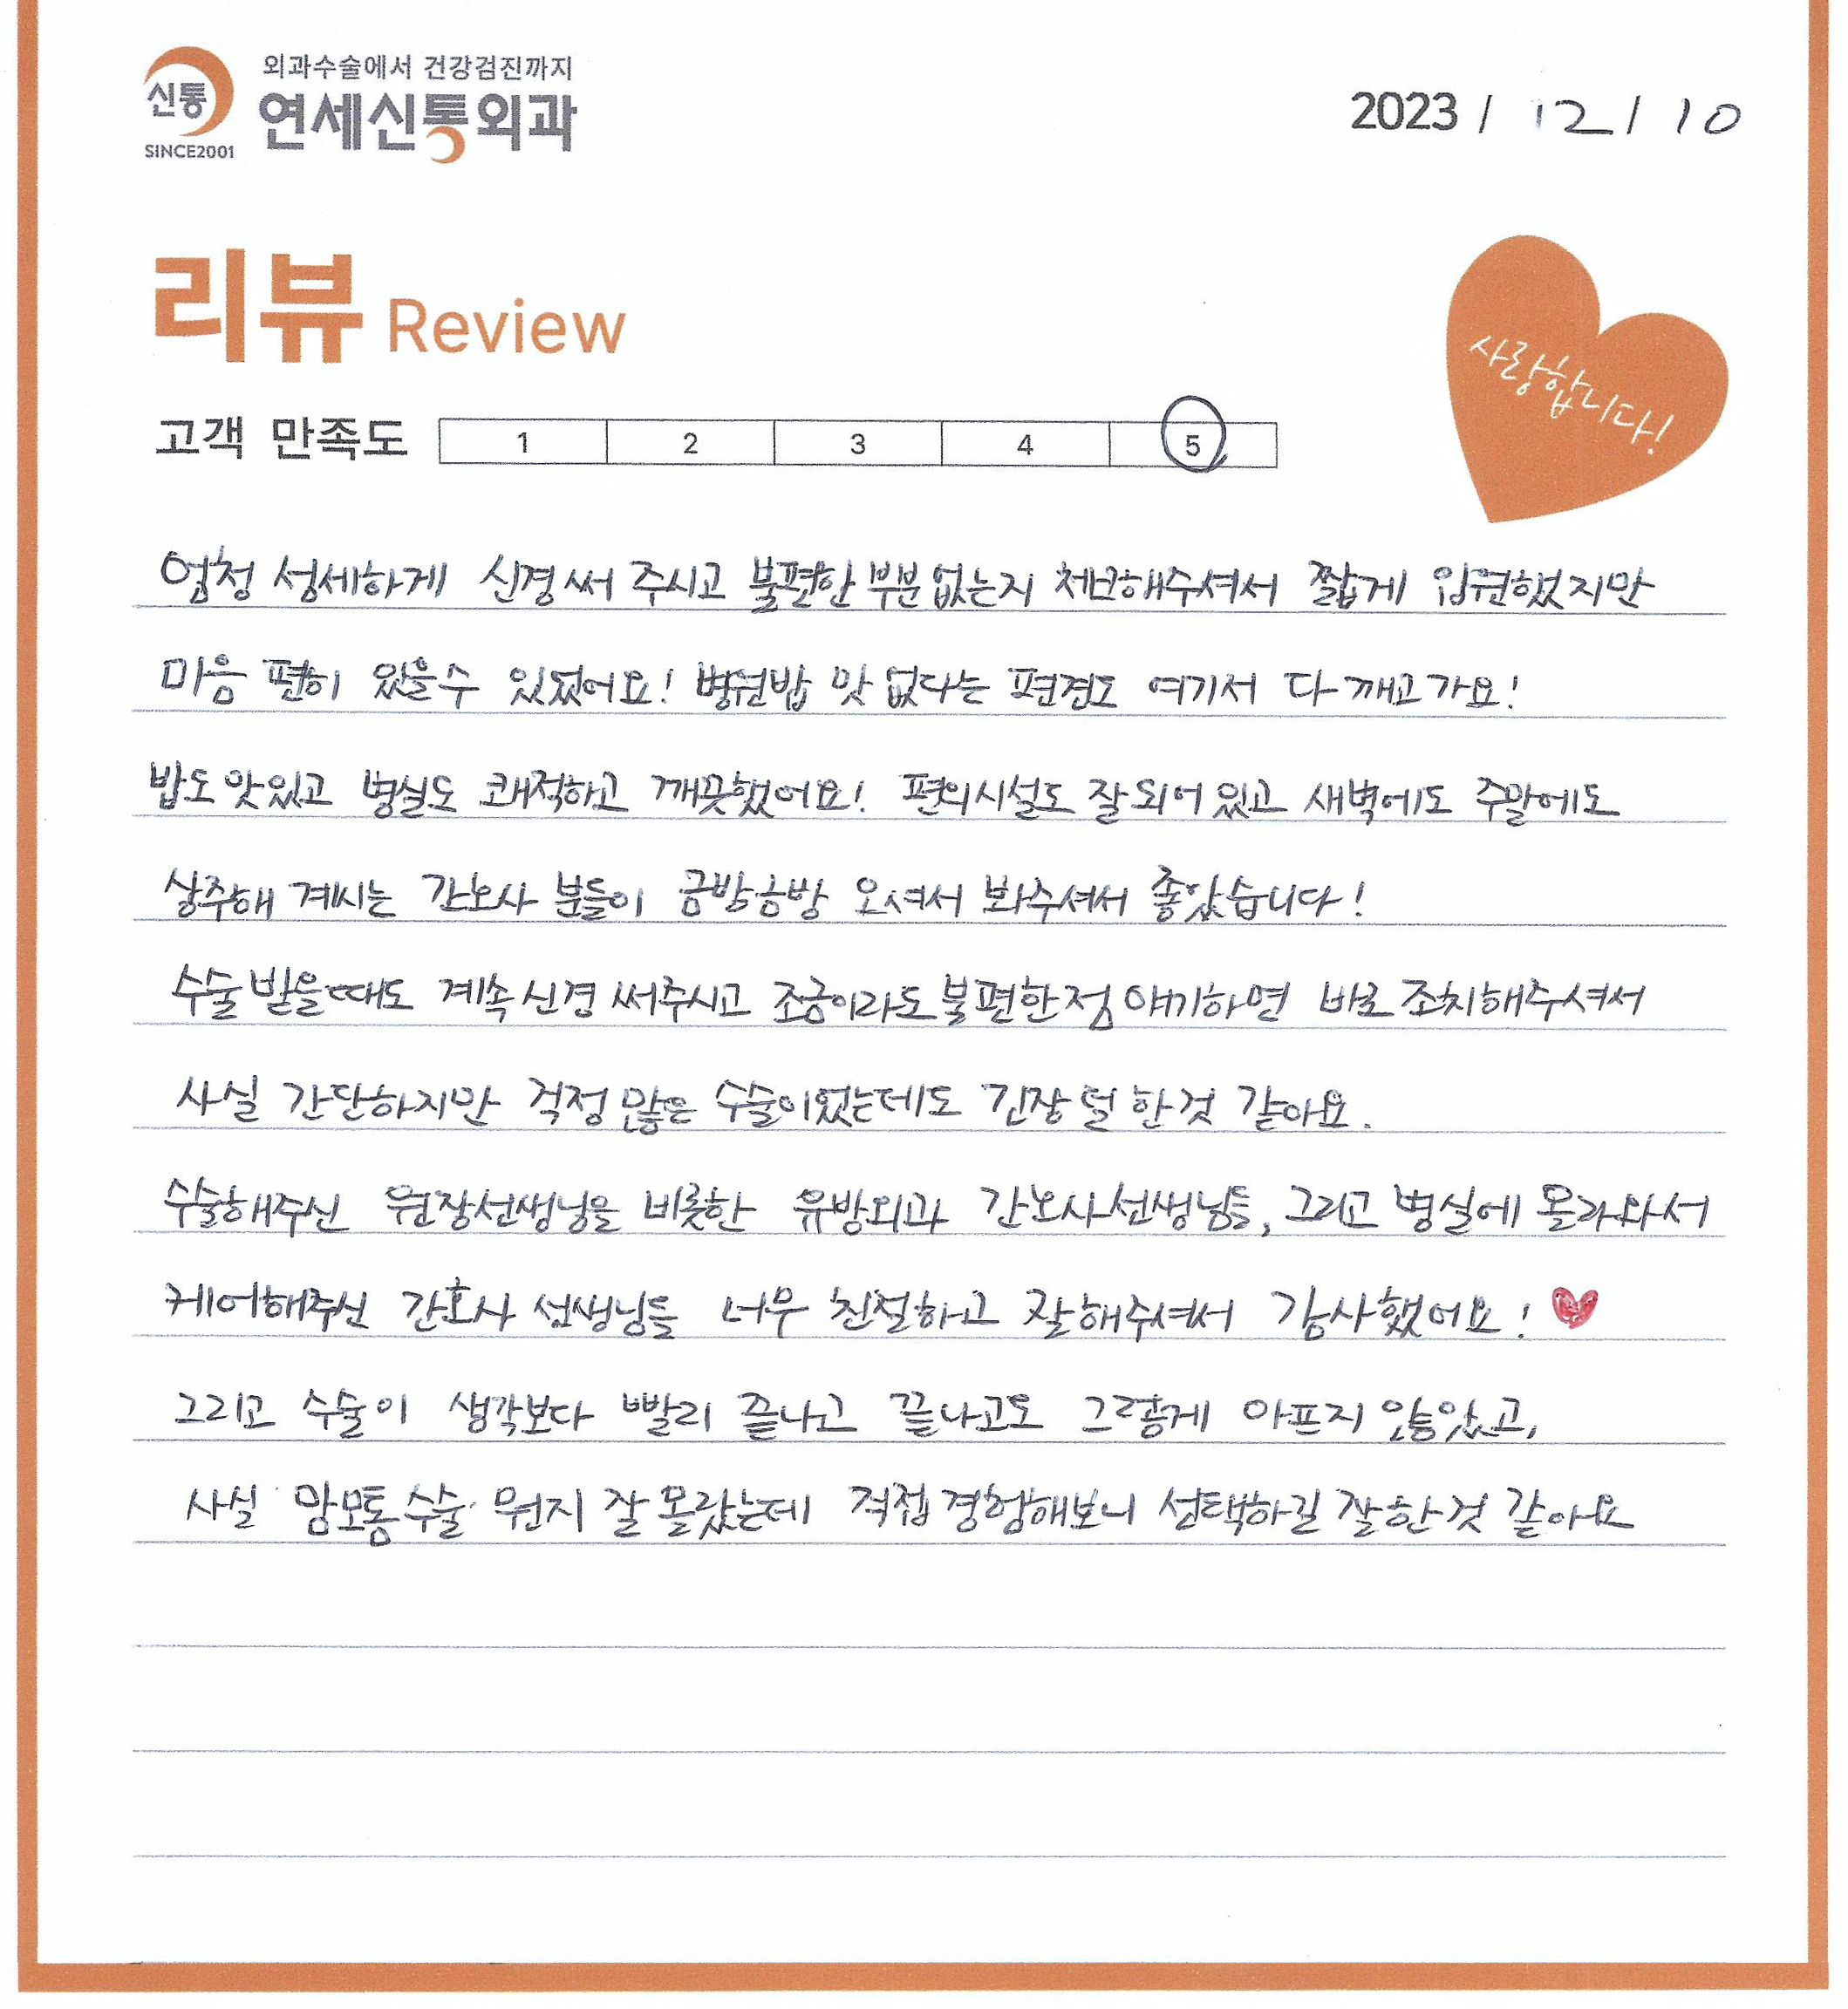 외과수술에서 건강검진까지
신통
연세신통외과
SINCE2001
2023 / 12 / 10
리뷰 Review
사랑합니다!
고객 만족도 1 2 3 4 5
엄청 섬세하게 신경써 주시고 불편한 부분없는지 체크해주셔서 짧게 입원했지만
마음 편히 있을수 있었어요! 병원밥 맛없다는 편견도 여기서 다 깨고가요!
밥도맛있고 병실도 쾌적하고 깨끗했어요! 편의시설도 잘되어있고 새벽에도 주말에도
상주해 계시는 간호사 분들이 금방금방 오셔서 봐주셔서 좋았습니다!
수술받을때도 계속신경써주시고 조금이라도불편한점 얘기하면 바로조치해주셔서
사실 간단하지만 걱정많은 수술이었는데도 긴장덜한것 같아요.
수술해주신 원장선생님을 비롯한 유방외과 간호사선생님들, 그리고 병실에 올라와서
케어해주신 간호사 선생님들 너무 친절하고 잘해주셔서 감사했어요!
그리고 수술이 생각보다 빨리 끝나고 끝나고도 그렇게 아프지 않았고,
사실 '맘모톰수술' 뭔지 잘몰랐는데 직접경험해보니 선택하길 잘한것 같아요